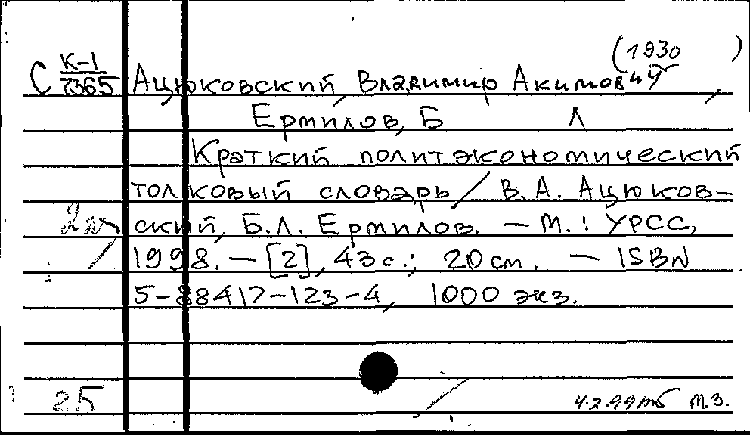 (1930 )
С К-1 Ацюковский, Владимир Акимович,
7365
Ермилов, Б Л
Краткий политэкономический
толковый словарь / В.А. Ацюков-
ский, Б.Л. Ермилов. — М.: УРСС,
1998. — [2], 43 с.; 20 см. — ISBN
5-88417-123-4, 1000 экз.
25 4.2.99 м.з.